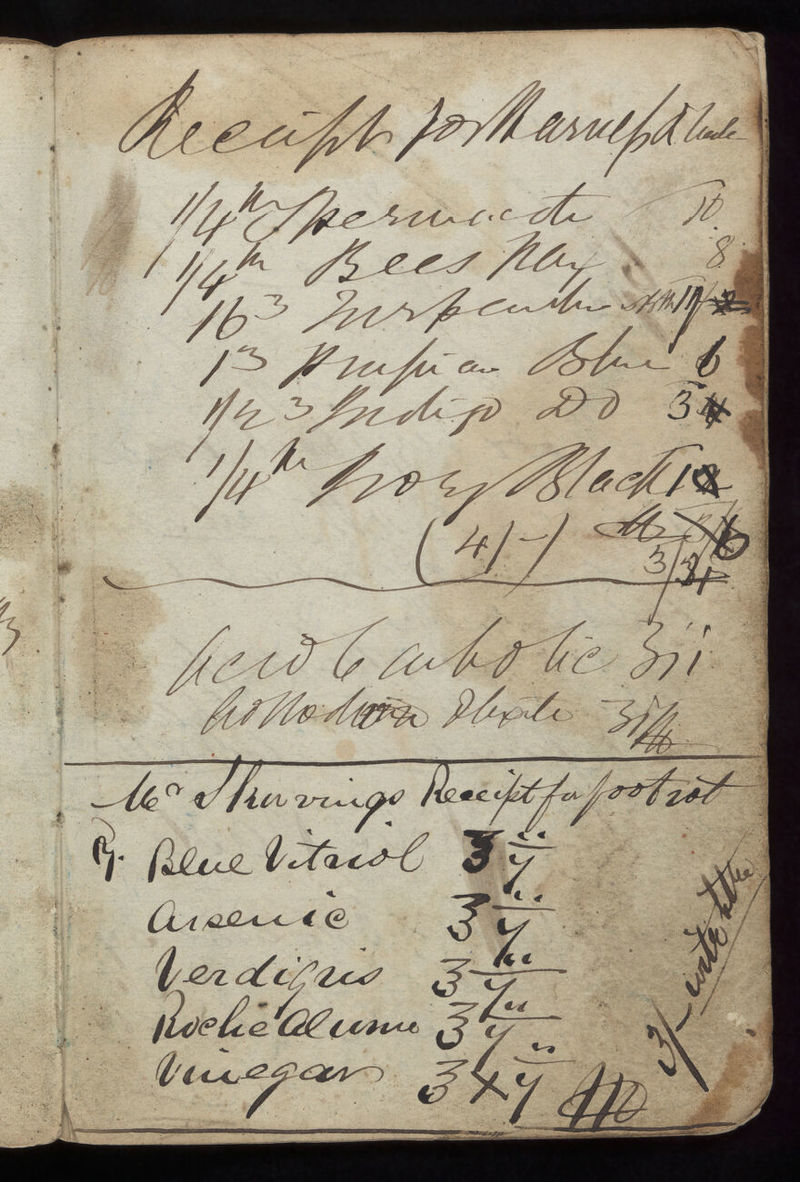 Receipt for Harness Blade
1/4 lb Spermaceti 10
1/4 lb Bees Wax 8
16 ℥ Turpentine 1/
1 ℥ Prussian Blue 6
1/2 ℥ Indigo Do 3
1/4 lb Ivory Black 1
(4/-)
3/3
Acid Carbolic ʒij
Collodion
Mr Skirvings Receipt for foot rot
℞. Blue Vitriol ℥ij
Arsenic ℥ij
Verdigris ℥ij
Roche Alum ℥ij
Vinegar ℥xij
3/- with bottle